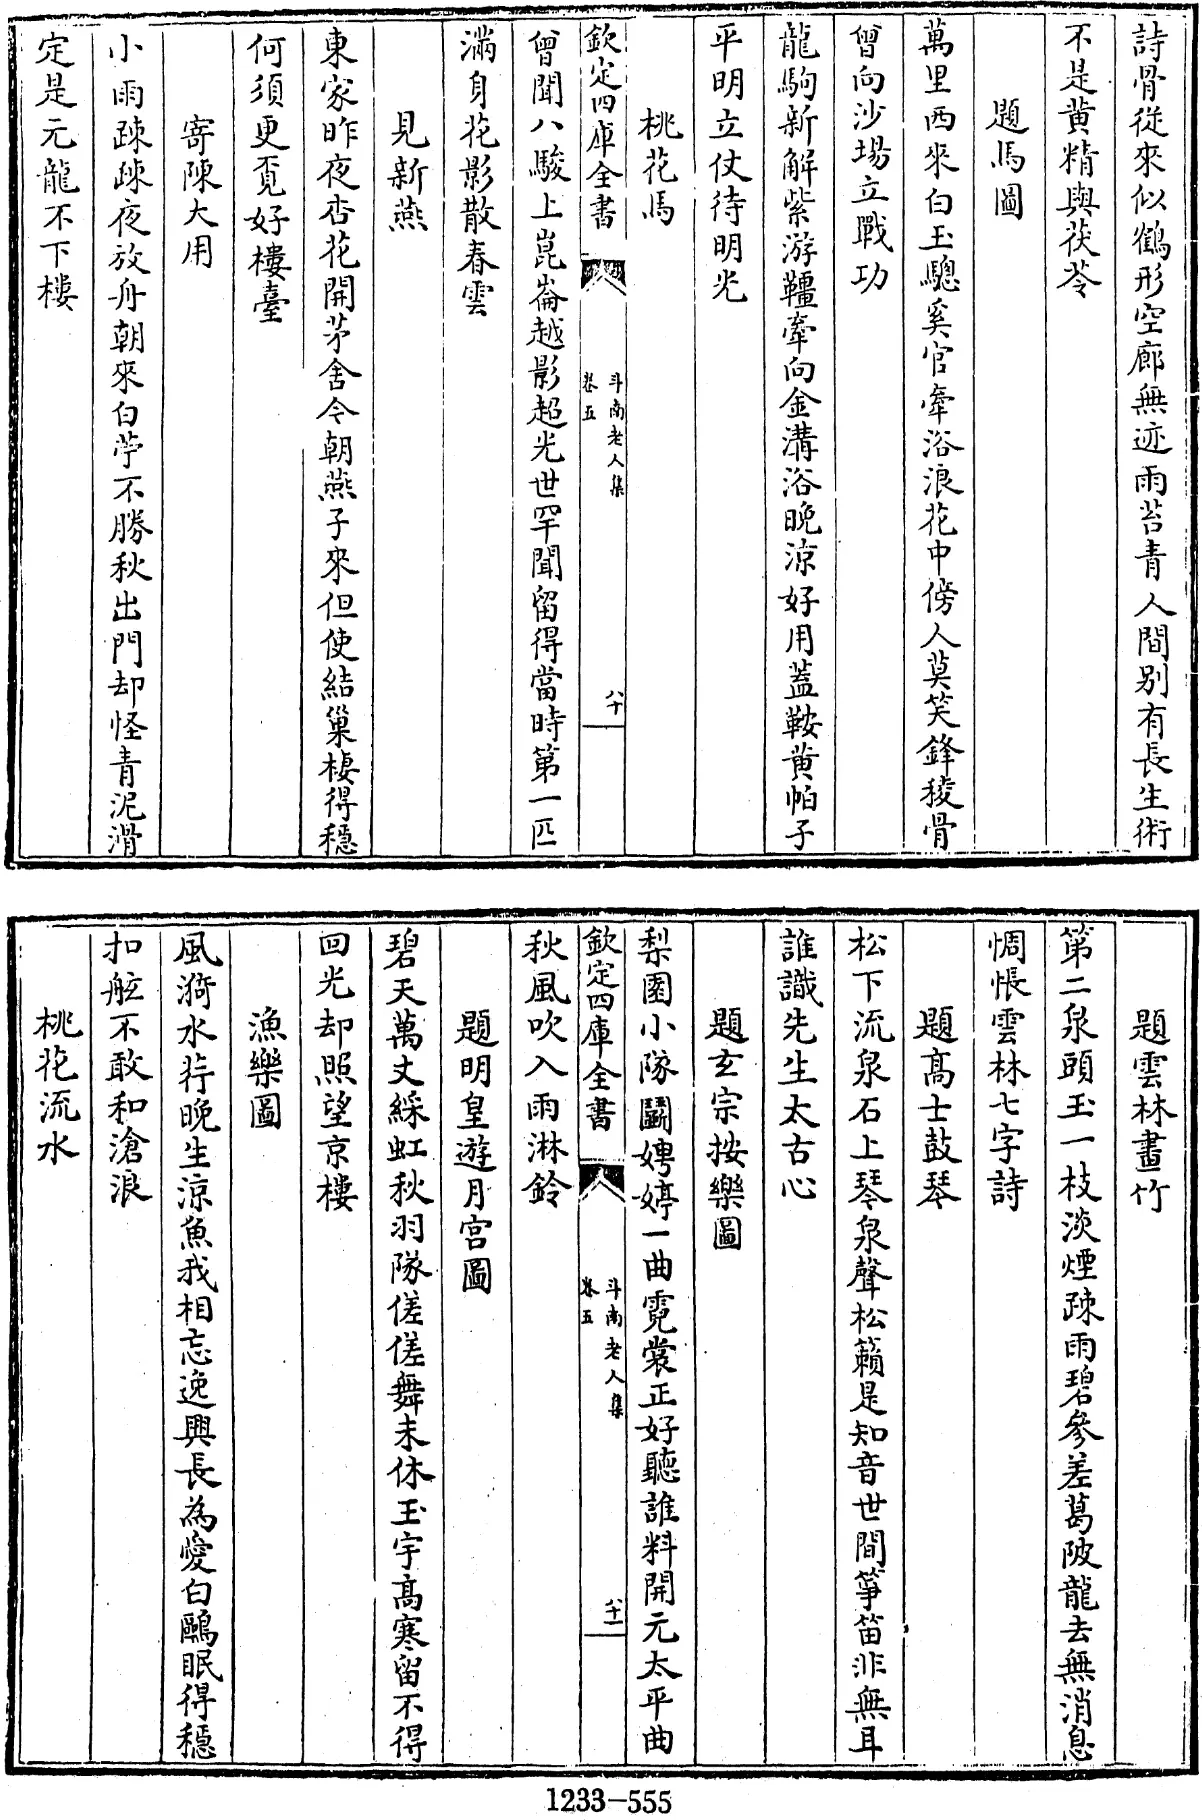 詩骨從來似鶴形空廊無迹雨苔青人間别有長生術
不是黄精與茯苓
題馬圖
萬里西來白玉驄奚官牽浴浪花中傍人莫笑鋒稜骨
曾向沙場立戰功
龍駒新解紫游韁牽向金溝浴晚涼好用蓋鞍黄帕子
平明立仗待明光
桃花馬
欽定四庫全書
斗南老人集
卷五
八十
曾聞八駿上崑崙越影超光世罕聞留得當時第一匹
滿身花影散春雲
見新燕
東家昨夜杏花開茅舍今朝燕子來但使結巢棲得穩
何須更覓好樓臺
寄陳大用
小雨疎疎夜放舟朝來白苧不勝秋出門却怪青泥滑
定是元龍不下樓
題雲林畫竹
第二泉頭玉一枝淡煙疎雨碧參差葛陂龍去無消息
惆悵雲林七字詩
題髙士鼓琴
松下流泉石上琴泉聲松籟是知音世間箏笛非無耳
誰識先生太古心
題玄宗按樂圖
梨園小隊鬭娉婷一曲霓裳正好聽誰料開元太平曲
欽定四庫全書
斗南老人集
卷五
八十一
秋風吹入雨淋鈴
題明皇遊月宫圖
碧天萬丈綵虹秋羽隊傞傞舞未休玉宇髙寒留不得
回光却照望京樓
漁樂圖
風漪水荇晚生涼魚我相忘逸興長為愛白鷗眠得穩
扣舷不敢和滄浪
桃花流水
1233-555